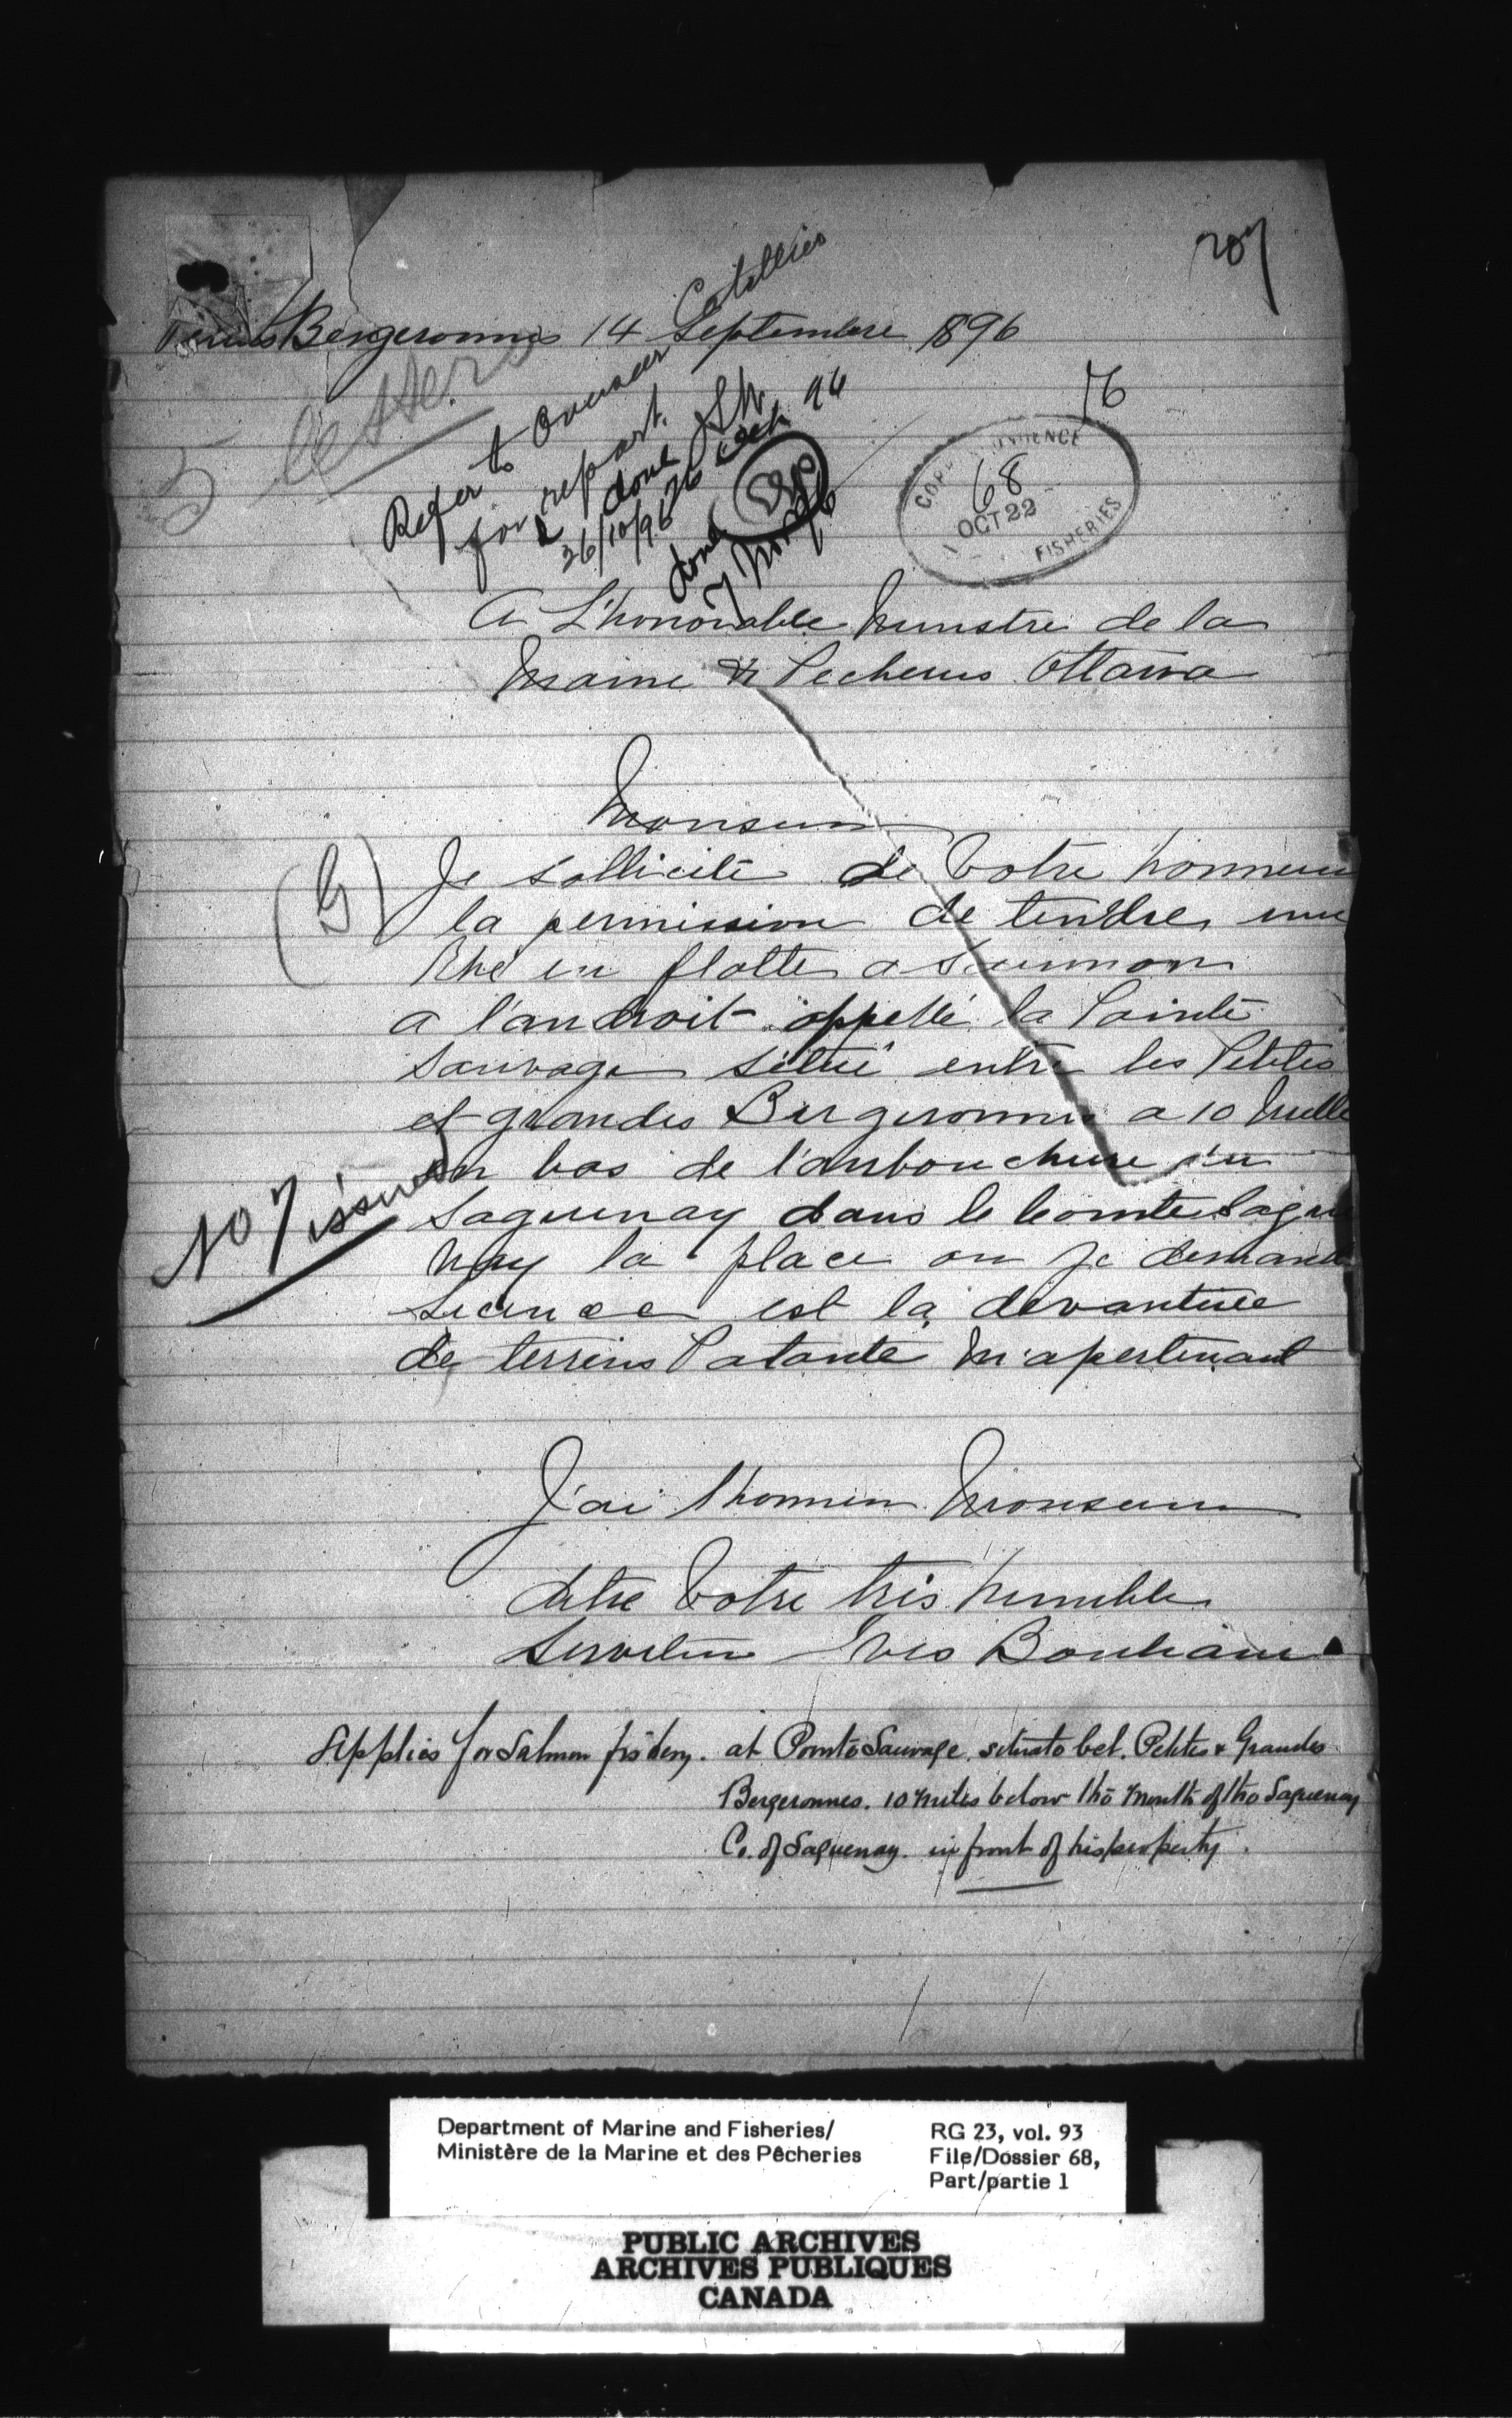 207
Bergeronnes 14 Septembre 1896
Refer to Overseer Catellier
for report.
done
26/10/96 26 Oct 96
done
7 Nov 96
76
CORRESPONDENCE
68
OCT 22
FISHERIES
A L'honorable Ministre de la
Marine & Pecheries Ottawa
Monsieur
(G) Je sollicite de Votre honneur
la permission de tendre une
Rhé en flotte a Saumon
a l'androit appellé la Pointe
Sauvage situé entre les Petites
et grandes Bergeronnes a 10 Mille
en bas de l'anbouchure du
No 7 issued
Saguenay dans le Comte Sague
nay la place ou je demande
Licence est la devanture
de terrins Patante M'apertenant
J'ai l'honneur Monsieur
detre Votre tres humble
Serviteur Yves Bouliane
Applies for Salmon fishery. at Pointe Sauvage. situate bet. Petites & Grandes
Bergeronnes. 10 miles below the mouth of the Saguenay
Co. of Saguenay. in front of his property.
Department of Marine and Fisheries/
Ministère de la Marine et des Pêcheries
RG 23, vol. 93
File/Dossier 68,
Part/partie 1
PUBLIC ARCHIVES
ARCHIVES PUBLIQUES
CANADA